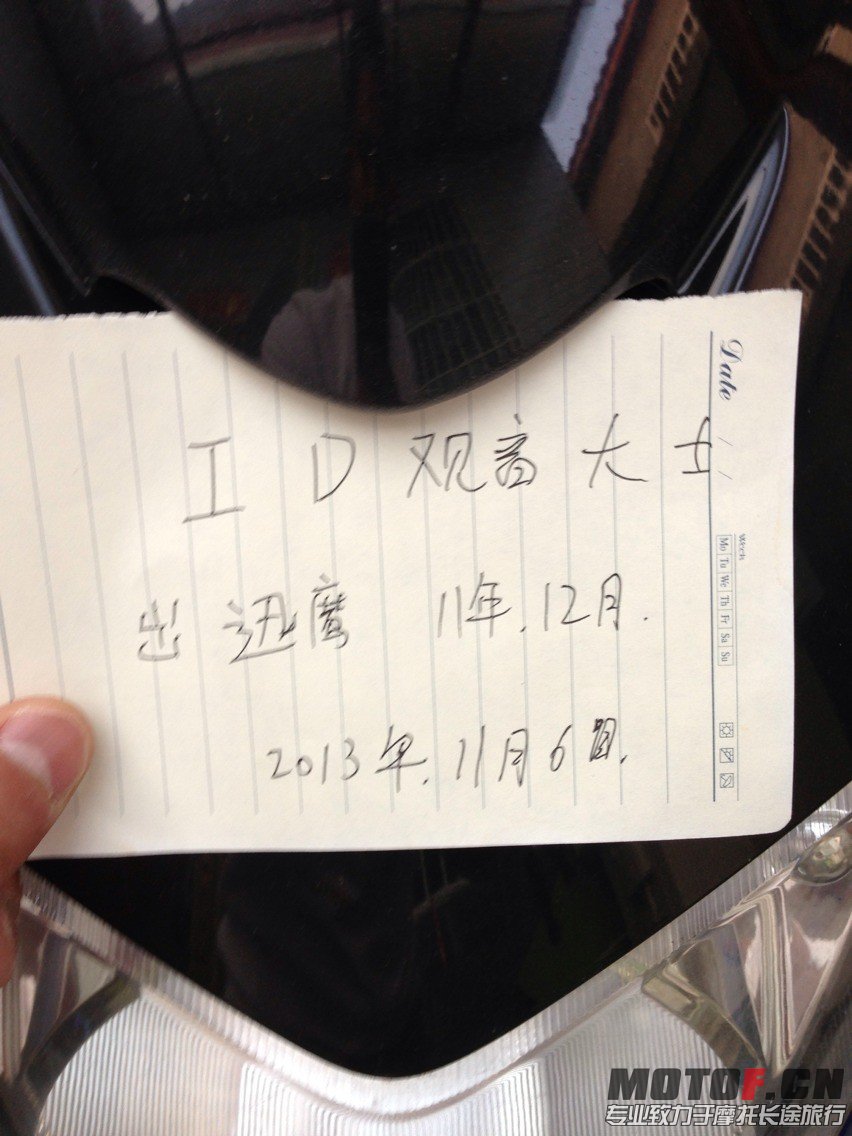 Date / /
Week
Mo Tu We Th Fr Sa Su
ID 观音大士
出 迅鹰 11年.12月.
2013年.11月6日.
MOTOF.CN
专业致力于摩托长途旅行